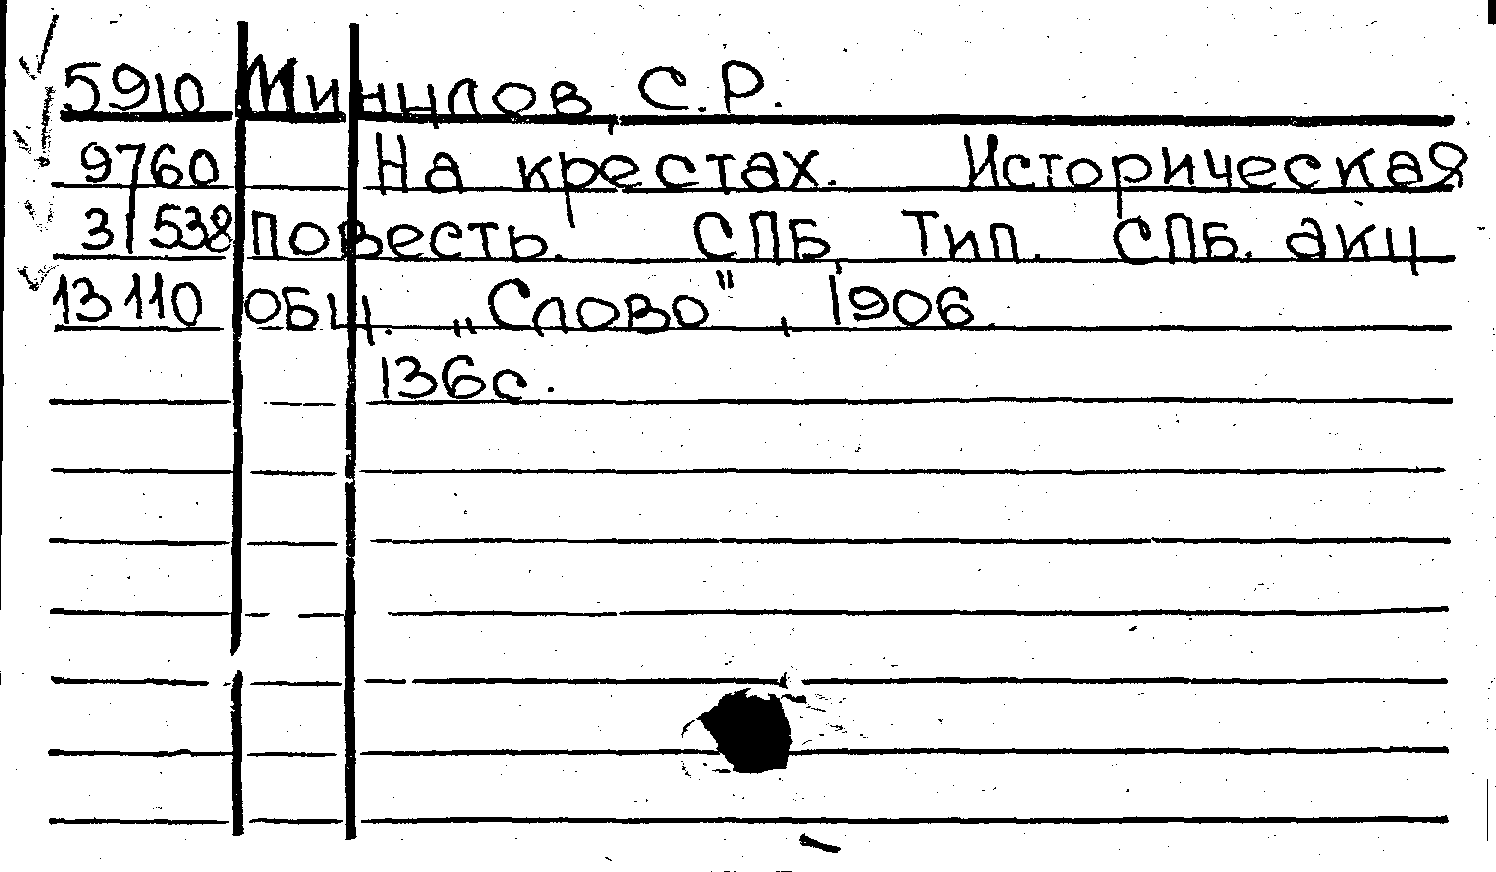 5910 Минцлов, С.Р.
9760 На крестах. Историческая
31538 повесть. СПБ, Тип. СПБ. акц
13110 общ. „Слово", 1906.
136с.